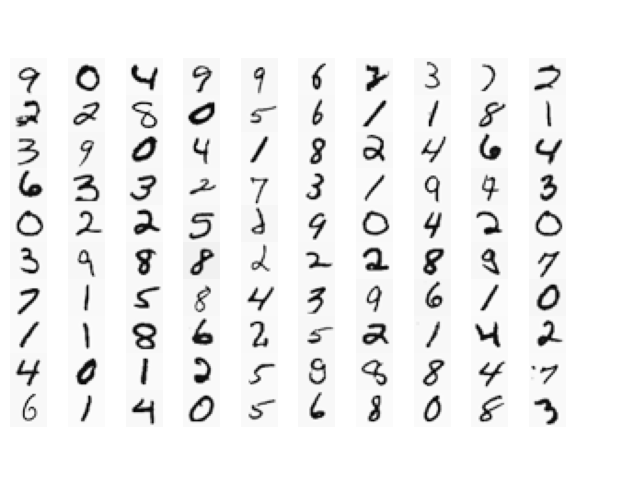 9 0 4 9 9 6 2 3 7 2
2 2 8 0 5 6 1 1 8 1
3 9 0 4 1 8 2 4 6 4
6 3 3 2 7 3 1 9 4 3
0 2 2 5 2 9 0 4 2 0
3 9 8 8 2 2 2 8 9 7
7 1 5 8 4 3 9 6 1 0
1 1 8 6 2 5 2 1 4 2
4 0 1 2 5 9 8 8 4 7
6 1 4 0 5 6 8 0 8 3